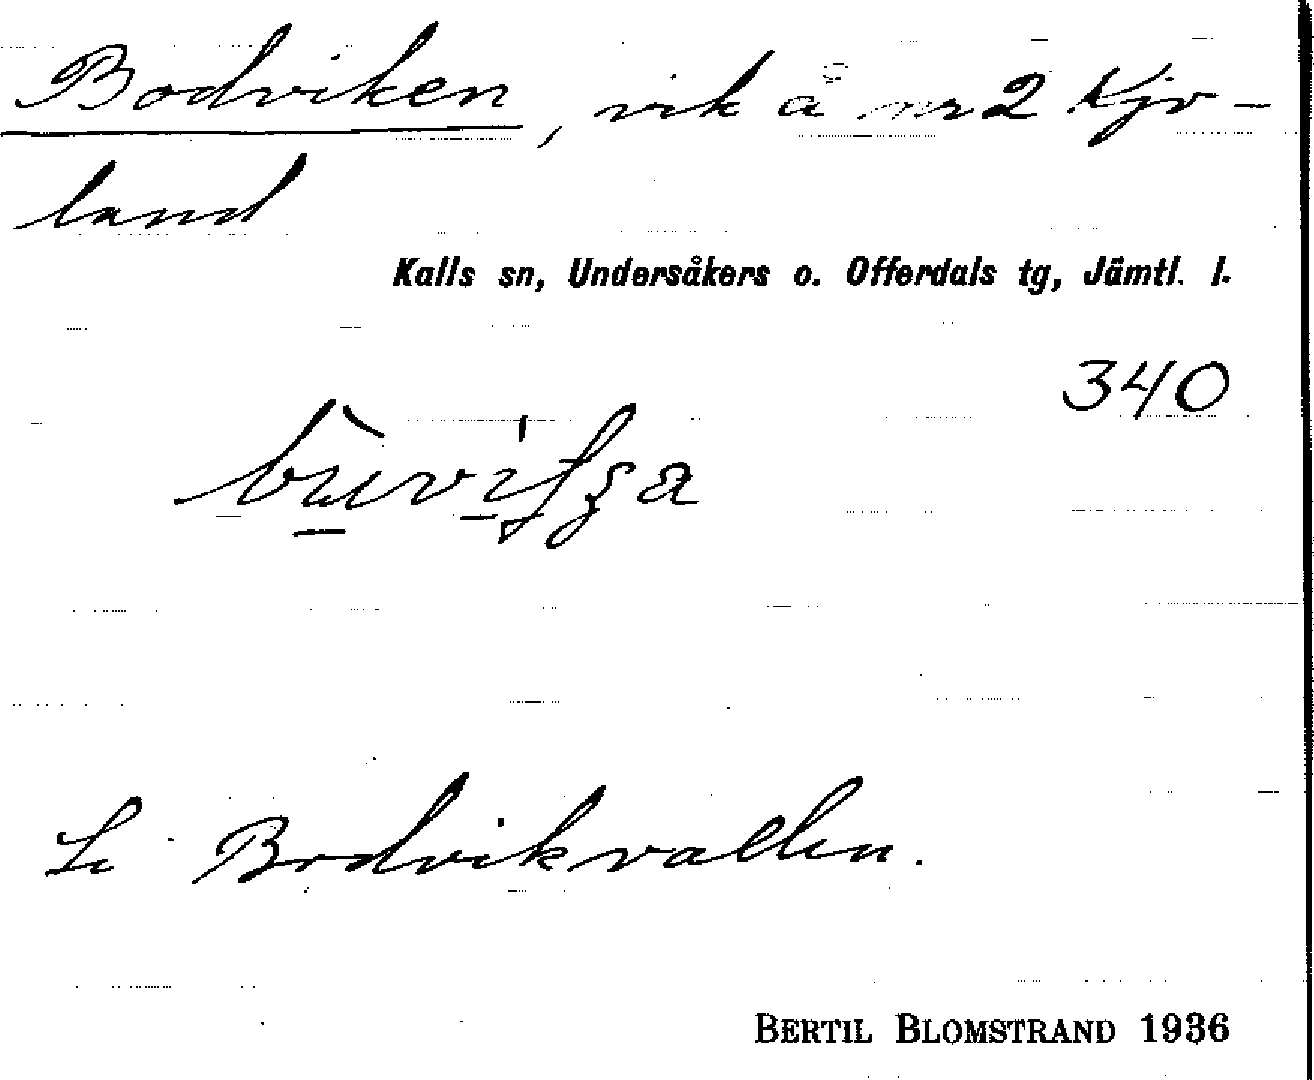 Bodviken, vik å nr 2 Kjo-
land
Kalls sn, Undersåkers o. Offerdals tg, Jämtl. l.
340
Se Bodvikvallen.
BERTIL BLOMSTRAND 1936